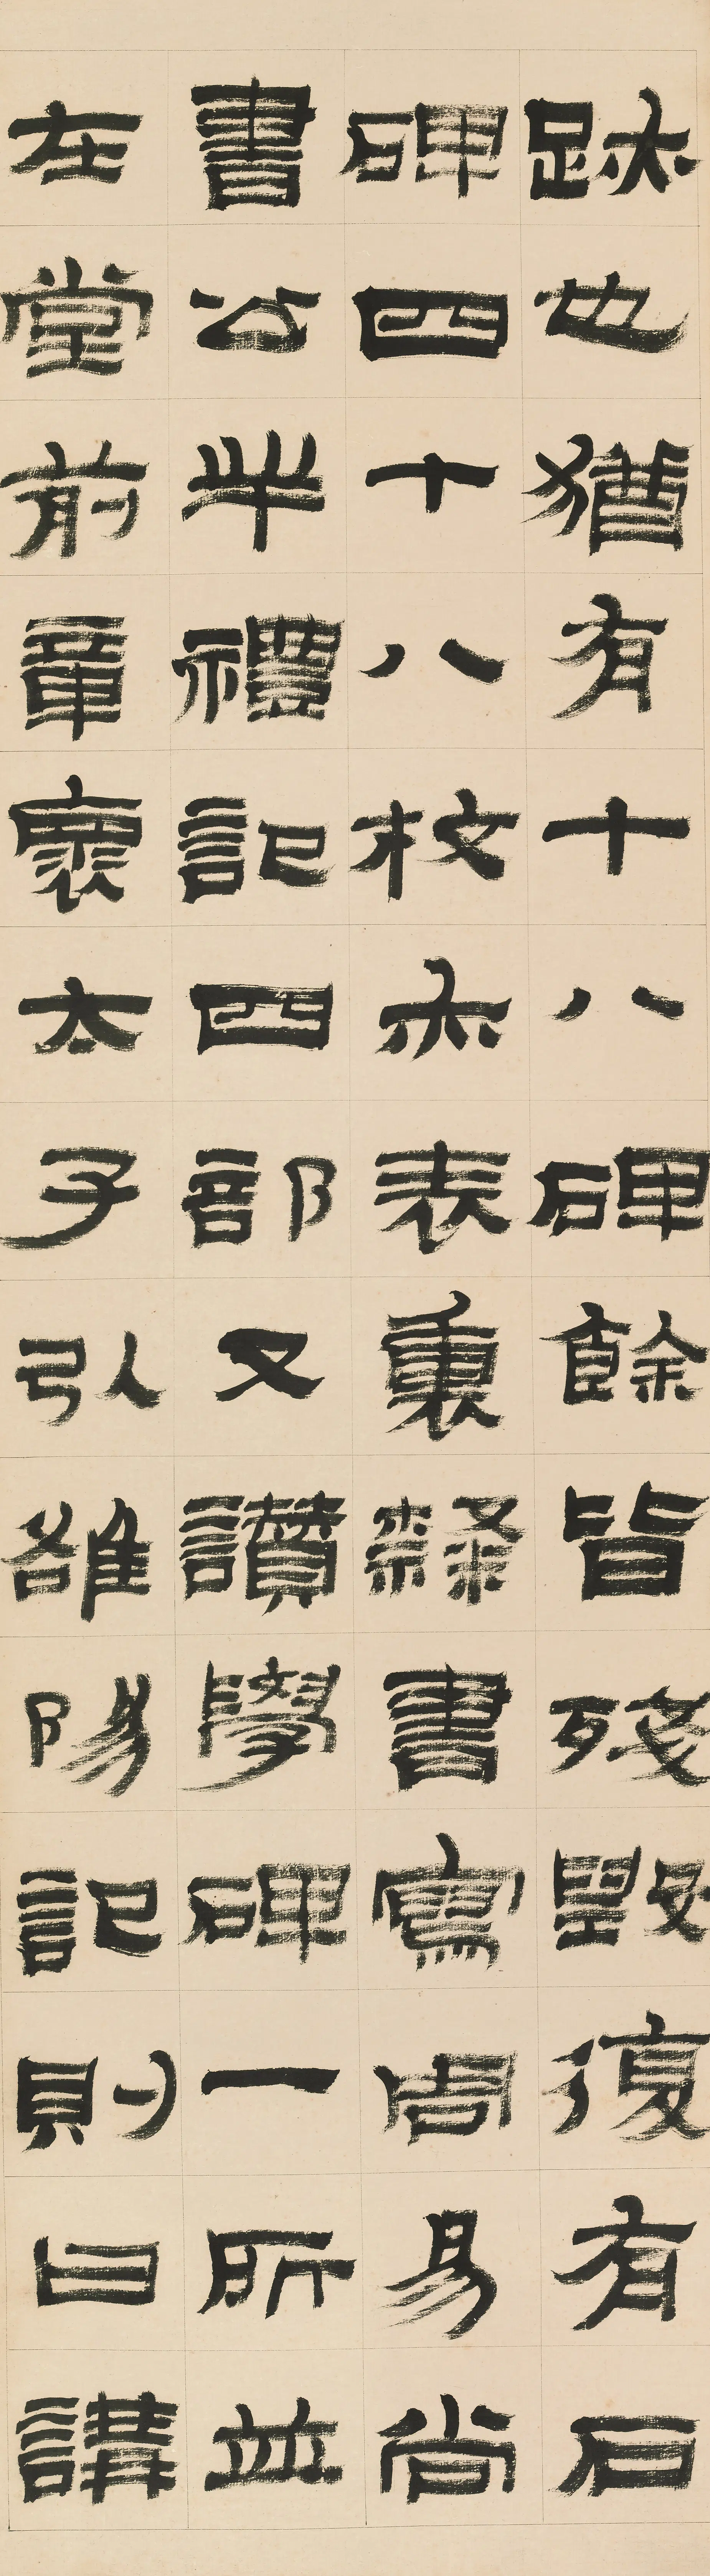 跡也猶有十八碑餘皆殘毀復有石
碑四十八枚亦表裏隸書寫周易尚
書公羊禮記四部又讚學碑一所並
在堂前章褱太子引雒陽記則曰講